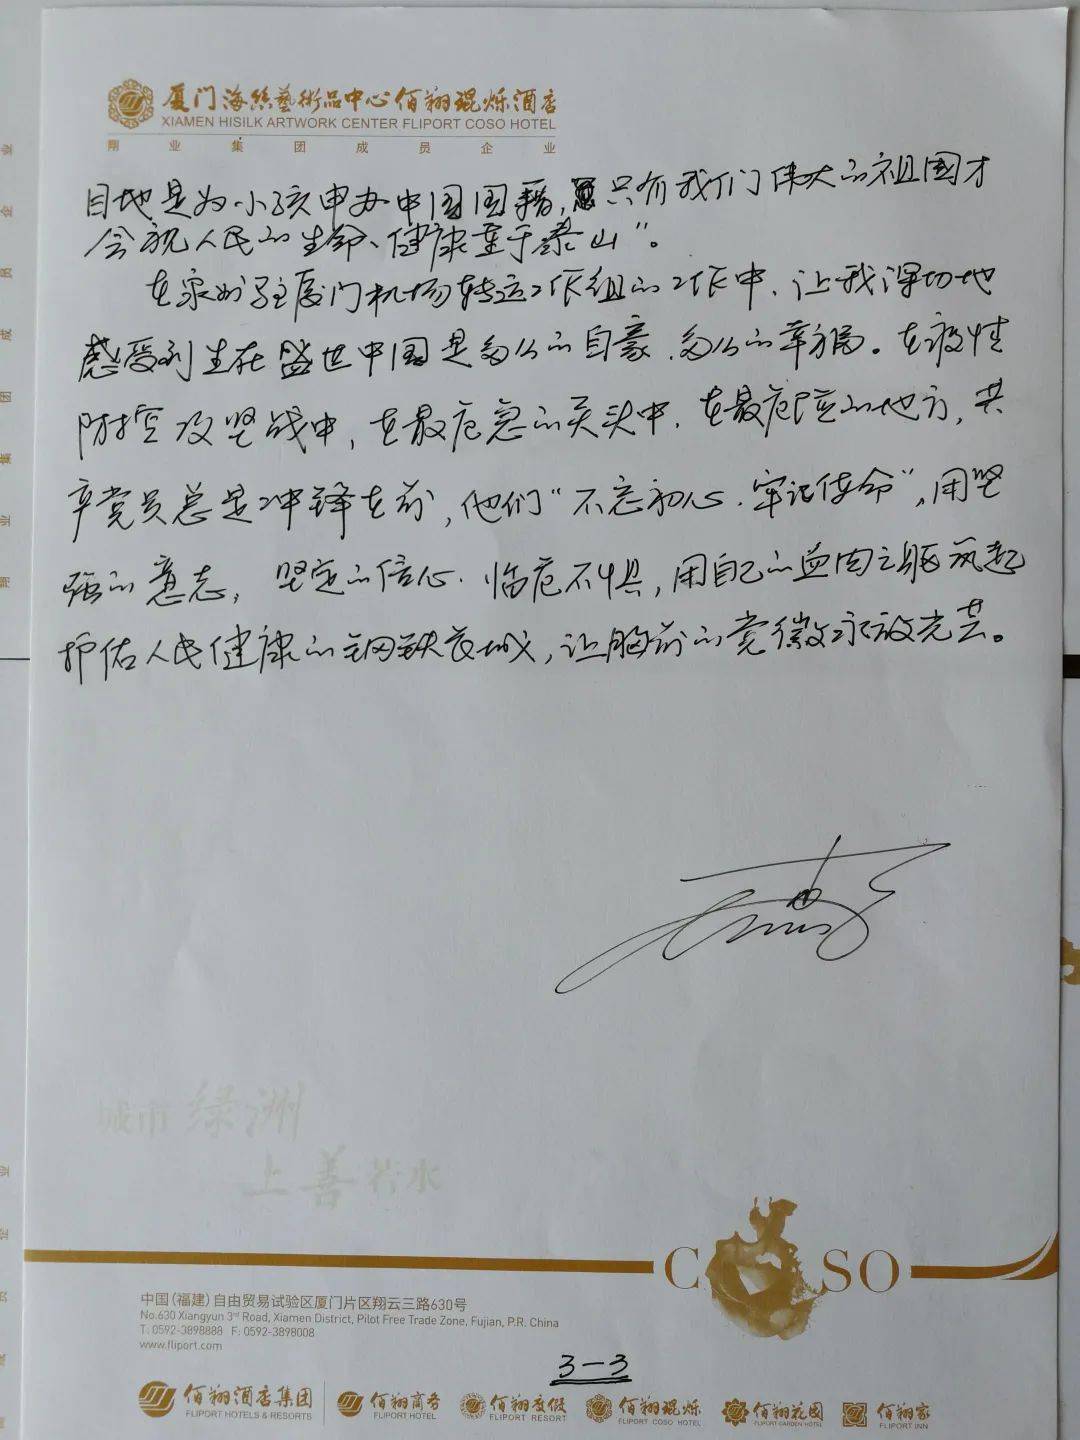 厦门海丝藝術品中心佰翔琨烁酒店
XIAMEN HISILK ARTWORK CENTER FLIPORT COSO HOTEL
翔业集团成员企业
目地是为小孩申办中国国籍,只有我们伟大的祖国才
会视人民的生命、健康重于泰山"。
在泉州驻厦门机场转运工作组的工作中,让我深切地
感受到生在盛世中国是多么的自豪、多么的幸福。在疫情
防控攻坚战中,在最危急的关头中、在最危险的地方,共
产党员总是冲锋在前,他们"不忘初心、牢记使命",用坚
强的意志,坚定的信心、临危不惧,用自己的血肉之躯筑起
护佑人民健康的钢铁长城,让胸前的党徽永放光芒。
城市绿洲
上善若水
COSO
中国(福建)自由贸易试验区厦门片区翔云三路630号
No.630 Xiangyun 3rd Road, Xiamen District, Pilot Free Trade Zone, Fujian, P.R. China
T: 0592-3898888 F: 0592-3898008
www.fliport.com
3-3
佰翔酒店集团 佰翔商务 佰翔度假 佰翔琨烁 佰翔花园 佰翔家
FLIPORT HOTELS & RESORTS FLIPORT HOTEL FLIPORT RESORT FLIPORT COSO HOTEL FLIPORT GARDEN HOTEL FLIPORT INN